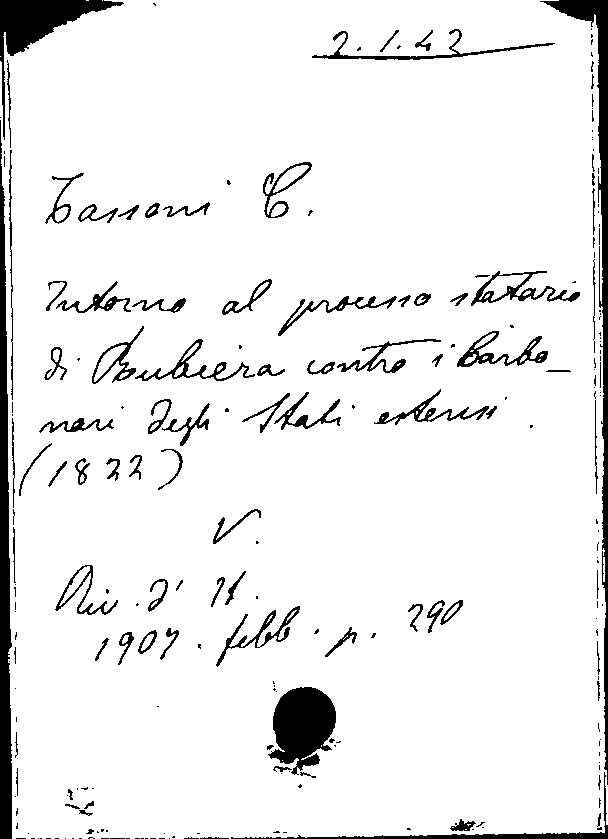 2.1.42
Tassoni C.
Intorno al processo statario
di Rubiera contro i Carbo_
nari degli Stati estensi.
(1822)
V.
Riv. d' It.
1907. febb. p. 290